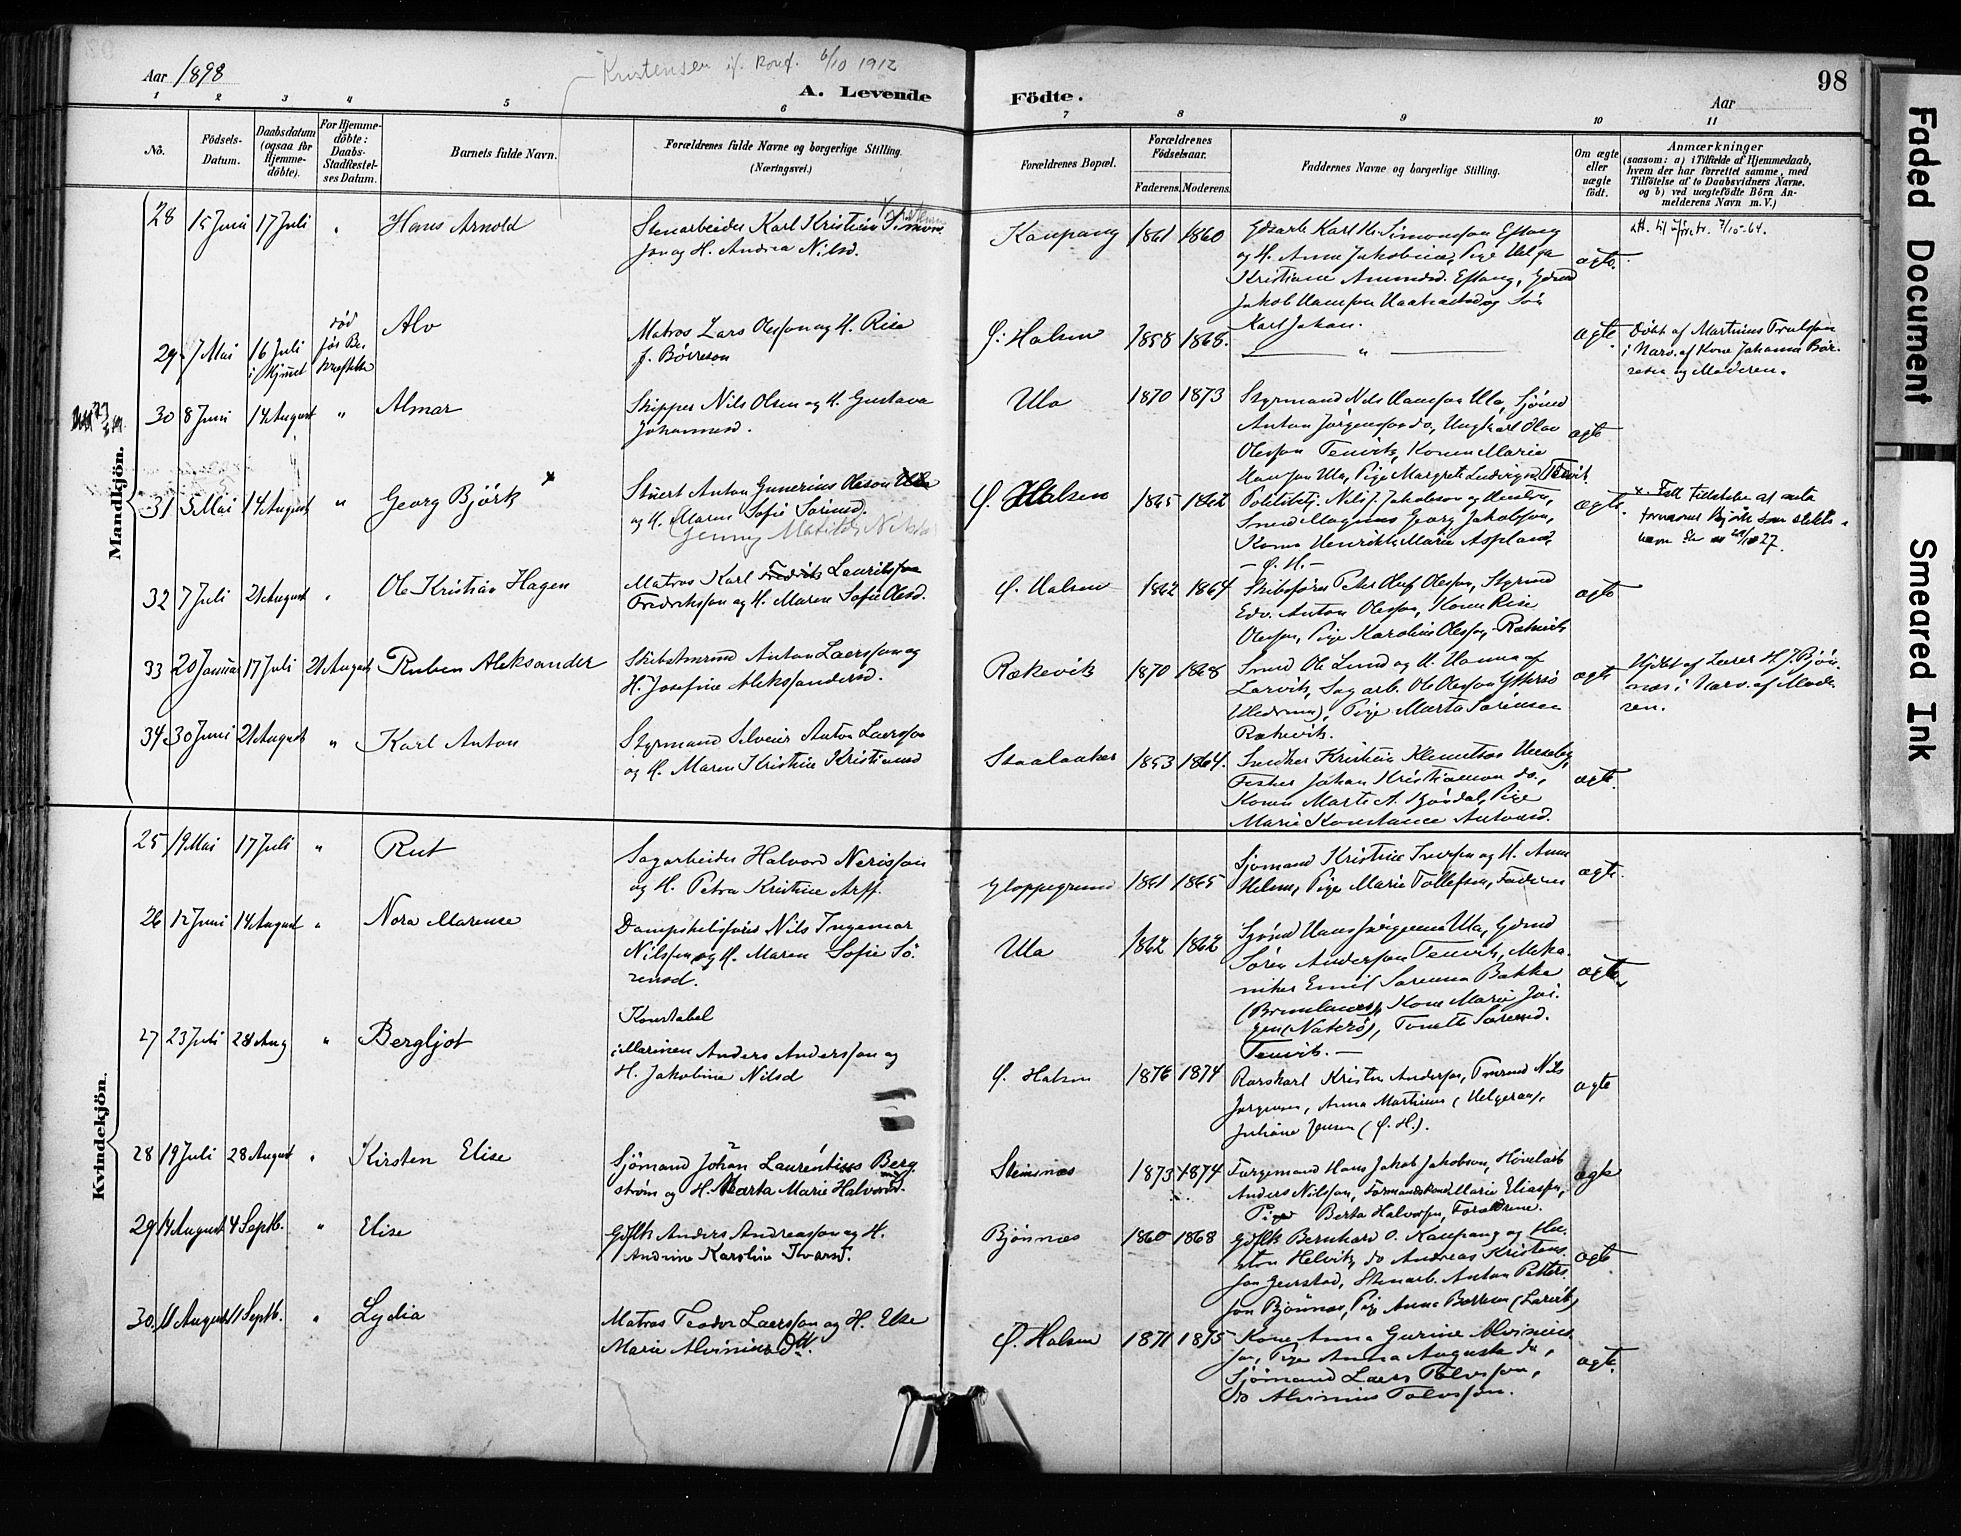 Aar 1898
Kristensen if. konf. 6/10 1912
A. Levende
Födte.
Aar
98
1 2 3 4 5 6 7 8 9 10 11
No.
Födsels-
Datum.
Daabsdatum
(ogsaa for
Hjemme-
döbte).
For Hjemme-
döbte:
Daabs-
Stadfæstel-
ses Datum.
Barnets fulde Navn.
Forældrenes fulde Navne og borgerlige Stilling.
(Næringsvei.)
Forældrenes Bopæl.
Forældrenes
Födselsaar.
Faderens. Moderens.
Faddernes Navne og borgerlige Stilling.
Om ægte
eller
uægte
födt.
Anmærkninger
(saasom: a) i Tilfælde af Hjemmedaab,
hvem der har forrettet samme, med
Tilföielse af to Daabsvidners Navne,
og b) ved uægtefödte Börn An-
melderens Navn m. V.)
Mandkjön.
28 15 Juni 17 Juli " Hans Arnold
Stenarbeider Karl Kristian Simon-
son og H. Andrea Nilsd.
Kaupang 1861 1860
Gdsarb. Karl Kr. Simonsson Eftang
og H. Anna Jakobine, Pige Helga
Kristiane Amundsd. Eftang, Gdmd
Karl Johan.
ægte.
29 7 Mai 16 Juli
i Hjemmet
død
før Be-
kræftelse
Alv
Matros Lars Olsson og H. Risa
f. Børreson
Ø. Halsen 1858 1865.
"
ægte.
Døbt af Martinius Trulsson
i Nærv. af Kone Johanna Bør-
resen og Moderen.
30 8 Juni 14 August " Almar
Skipper Nils Olsen og H. Gustava
Johannesd.
Ula 1870 1873
Styrmand Nils Hansson Ula, Sjömd
Anton Jørgensson do, Ungkarl Olav
Olesson Tenvik, Konen Marie
Hansson Ula, Pige Margrete Ludvigsd. Tenvik
ægte
31 5 Mai 14 August " Georg Björk x
Stuert Anton Gunerius Oleson
og H. Maren Sofie Sörensd.
Jenny Matilde Nilsd.
Ø. Halsen 1865 1862
Politibtj. Nils J. Jakobson og Hustru,
Smed Magnus Georg Jakobsson,
Kone Henrikke Marie Aspland,
- Ø. H. -
ægte.
x. Fått tilladelse at anta
fornavnet Björk som slekts-
navn
32 7 Juli 21 August " Ole Kristian Hagen
Matros Karl Fredrik Lauritsson
Fredriksson og H. Maren Sofie Olesd.
Ø. Halsen 1862 1864
Skibsförer Peter Oluf Olesson, Styrmd
Edv. Anton Olesson, Konen Risa
Olesson, Pige Karoline Olesson, Rækevik
ægte
33 20 Januar 17 Juli 21 August Ruben Aleksander
Skibstmrmd Anton Laersson og
H. Josefine Aleksandersd.
Rækevik 1870 1868
Smed Ole Lund og H. Hanna af
Larvik, Sagarb. Ole Olesson Ytterö
(Hedrum), Pige Marta Sörensen
Rækevik.
ægte
Hjdbt af Lærer H. J. Bjön-
næs i Nærv. af Mode-
ren.
34 30 Juni 21 August " Karl Anton
Styrmand Selveier Anton Laersson
og H. Maren Kristine Kristiansd
Staalaaker 1853 1864.
Snedker Kristian Klemetson
Fisker Johan Kristianson do.,
Konen Marte A. Hövdal, Pige
Marie Konstance Antonsd.
ægte.
Kvindekjön.
25 19 Mai 17 Juli " Rut
Sagarbeider Halvord Nerisson
og H. Petra Kristine Arff.
Gloppegrund 1861 1865
Sjömand Kristian Iversen og H. Anna
Helene, Pige Marie Tollefsen, Faderen
ægte.
26 12 Juni 14 August " Nora Marense
Dampskibsförer Nils Ingemar
Nilsson og H. Maren Sofie Sö-
rensd.
Ula 1862 1862
Sjömd Hans Jörgensen Ula, Gdmd
Sören Andersson Tenvik, Meka-
niker Emil Sörensen Bakke
(Brunlanes), Kone Marie Jör-
gen (Naterö), Tomette Sörensd.
Tenvik. -
ægte.
27 23 Juli 28 Aug " Bergljot
Konstabel
i Marinen Anders Andersson og
H. Jakobine Nilsd
Ø. Halsen 1876 1874
Rorskarl Kristen Andersson, Tmrmd Nils
Jørgensen, Anna Martinsen (Helgeraa),
Juliane Jensen (Ø. H.).
ægte
28 19 Juli 28 August " Kirsten Elise
Sjömand Johan Laurentius Berg-
ström og H. Marta Marie Halvorsd.
Stensnæs 1873 1874
Færgemand Hans Jakob Jakobson, Hövelarb
Anders Nilsson, Formandskone Marie Eliassen,
Pige Berta Halvorsen, Forældrene.
ægte
29 14 August 4 Septb. " Elise
Gdflk Anders Andreasson og H.
Andrine Karoline Ivarsd.
Bjönnes 1860 1868
Gdflk Bernhard O. Kaupang og
Helvik, do Andreas Kristens-
son Jerstad, Stenarb. Anton Petters-
son Bjönnes, Pige Anna Bakken (Larvik)
ægte.
30. 11 August 11 Septb. " Lydia
Matros Teodor Laersson og H. Else
Marie Alvinius Dtt.
Ø. Halsen 1871 1875
Kone Anna Gurine Alvinius-
son, Pige Anna Augusta do,
Sjömand Laers Tolvsson,
do Alvinius Tolvsson.
ægte.
Faded Document
Smeared Ink